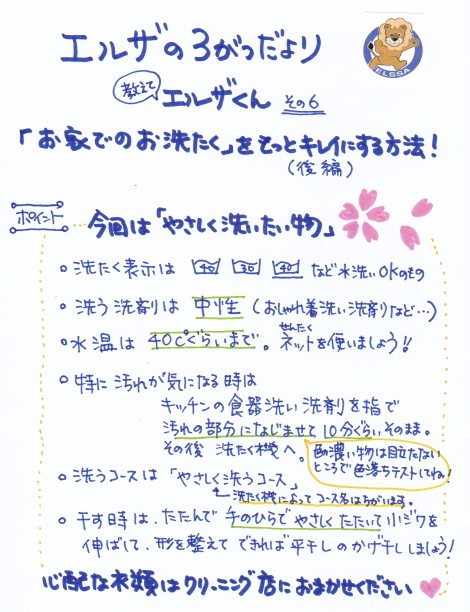 エルザの3がつだより
ELSSA
教えて
エルザくん その6
「お家でのお洗たく」をもっとキレイにする方法!
(後編)
ポイント
今回は「やさしく洗いたい物」
○洗たく表示は 40 30 40 など水洗いOKのもの
○洗う洗剤は 中性(おしゃれ着洗い洗剤など…)
○水温は40℃ぐらいまで。ネットを使いましょう!!
せんたく
○特に汚れが気になる時は
キッチンの食器洗い洗剤を指で
汚れの部分になじませて10分ぐらいそのまま。
その後 洗たく機へ。
色の濃い物は目立たない
ところで色落ちテストしてね!
○洗うコースは「やさしく洗うコース」
←洗たく機によってコース名はちがいます。
○干す時は、たたんで手のひらでやさしくたたいて小ジワを
伸ばして、形を整えて できれば平干しのかげ干ししましょう!
心配な衣類はクリーニング店におまかせください